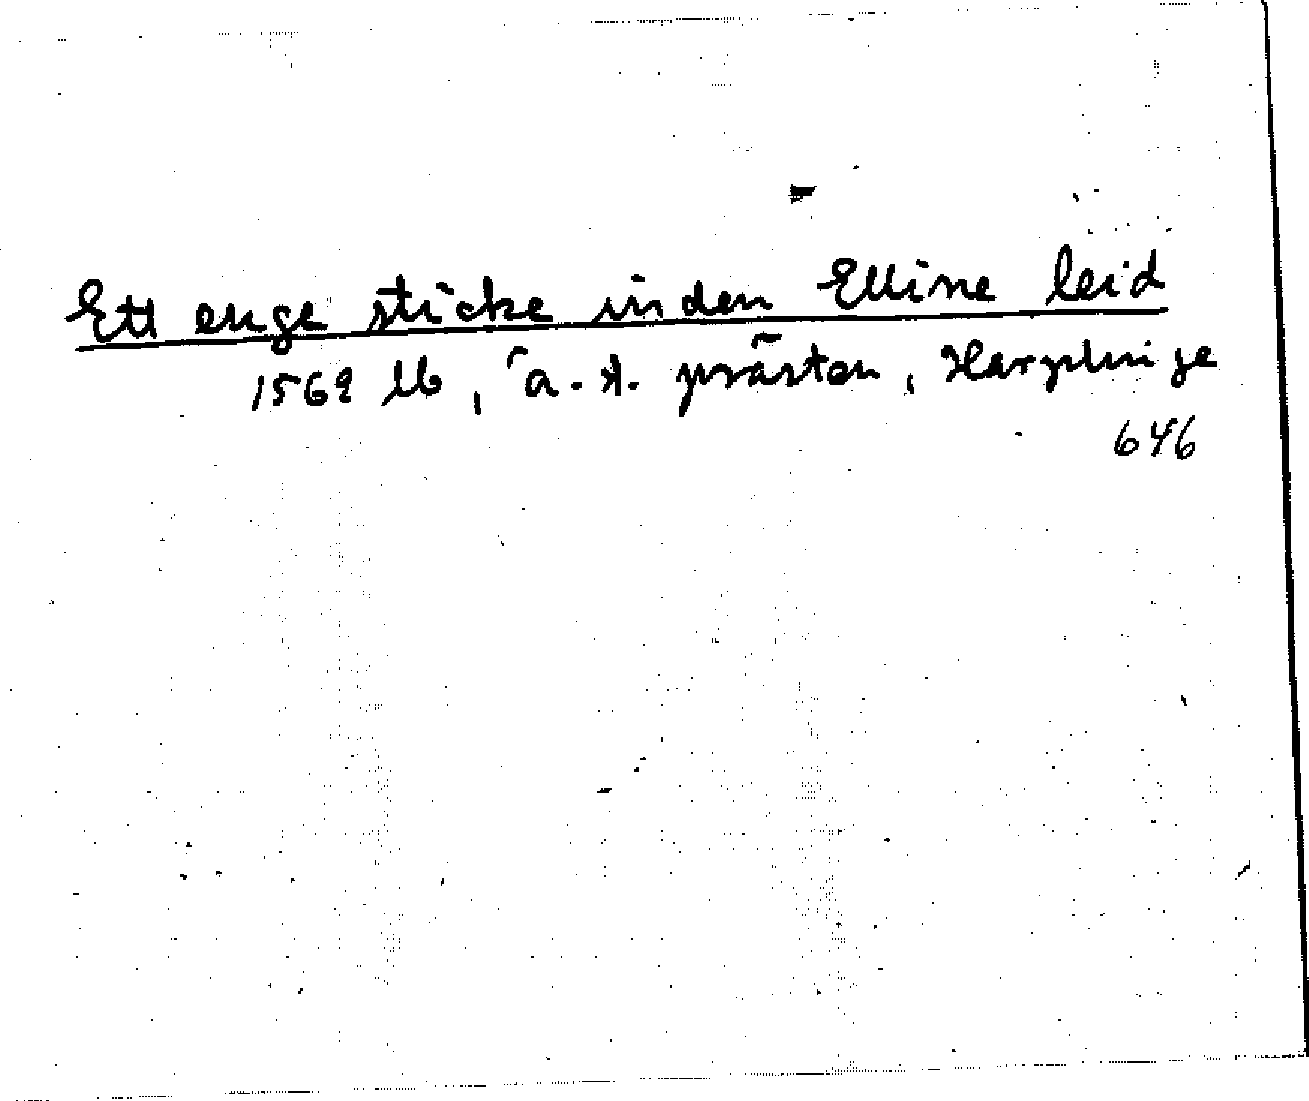 Ett enge sticke inden Elline leid
1569 lb, ä. t. prästen, Harplinge
646